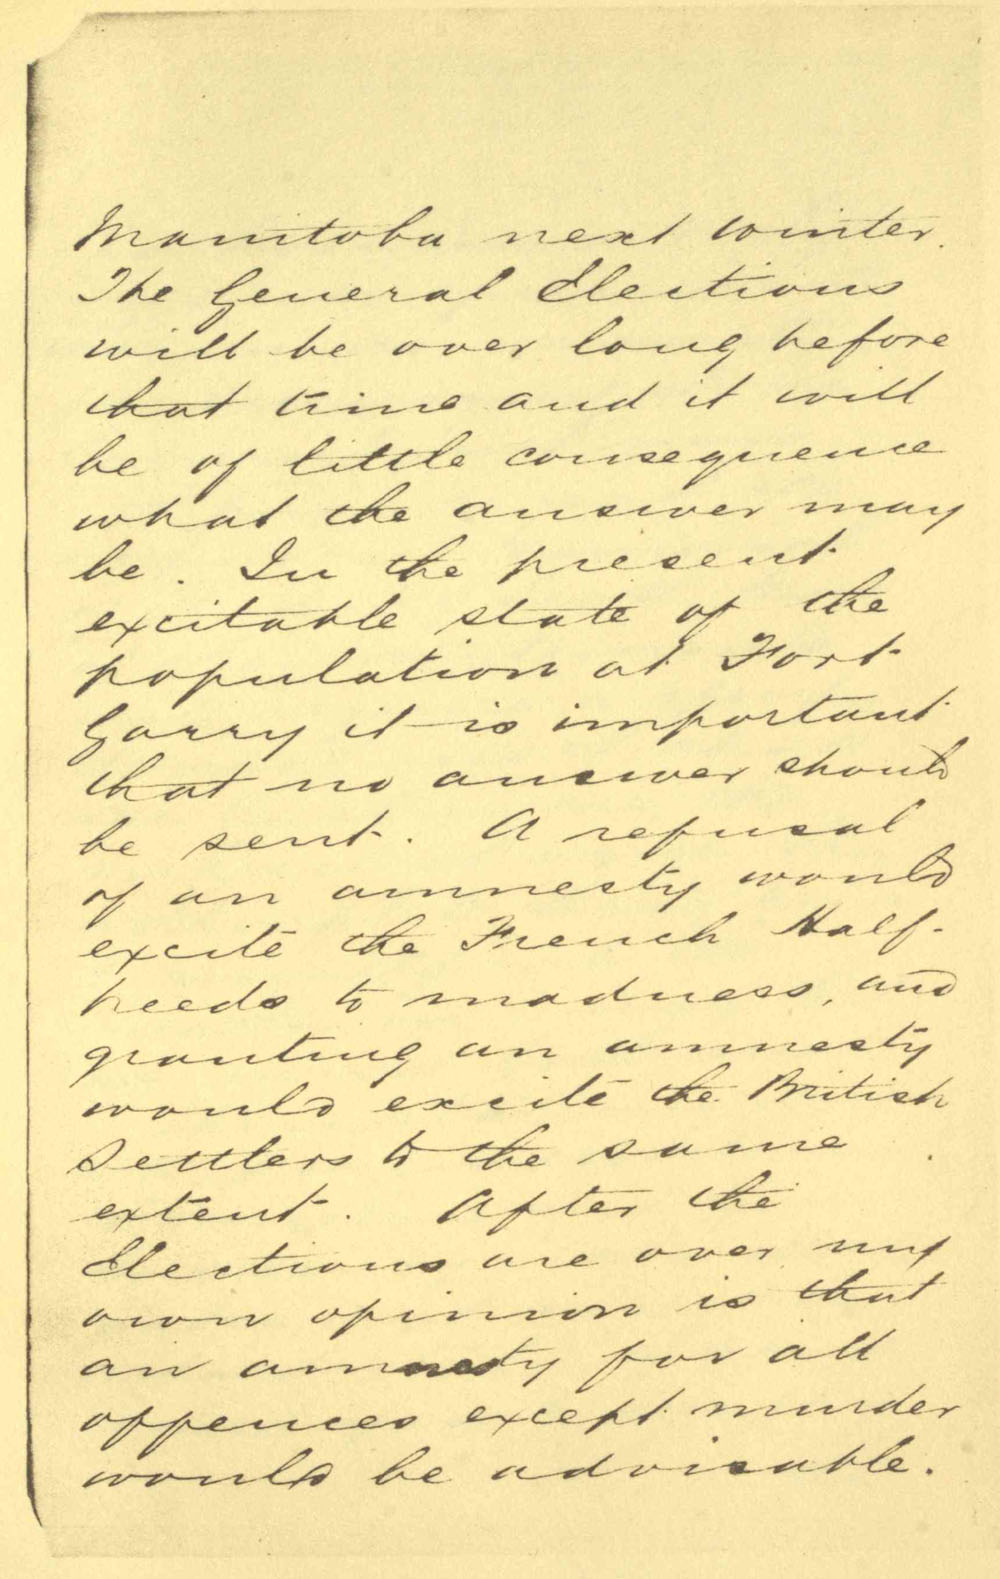 Manitoba next winter.
The General Elections
will be over long before
that time and it will
be of little consequence
what the answer may
be. In the present
excitable state of the
population at Fort
Garry it is important
that no answer should
be sent. A refusal
of an amnesty would
excite the French Half-
breeds to madness, and
granting an amnesty
would excite the British
Settlers to the same
extent. After the
Elections are over my
own opinion is that
an amnesty for all
offences except murder
would be advisable.